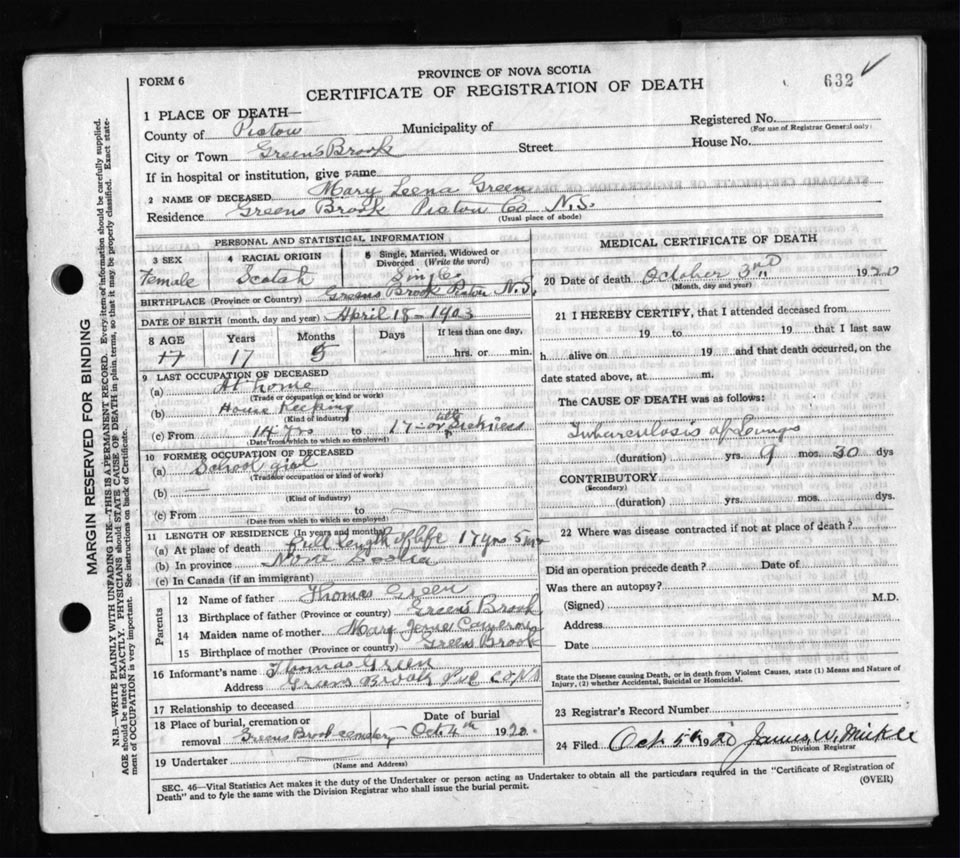 FORM 6
PROVINCE OF NOVA SCOTIA
632
CERTIFICATE OF REGISTRATION OF DEATH
1 PLACE OF DEATH—
County of Pictou Municipality of Registered No.
(For use of Registrar General only)
City or Town Greens Brook Street House No.
If in hospital or institution, give name
2 NAME OF DECEASED Mary Leena Green
Residence Greens Brook Pictou Co N.S.
(Usual place of abode)
PERSONAL AND STATISTICAL INFORMATION
3 SEX 4 RACIAL ORIGIN 5 Single, Married, Widowed or Divorced (Write the word)
Female Scotch Single
BIRTHPLACE (Province or Country) Greens Brook Pictou N.S.
DATE OF BIRTH (month, day and year) April 18 - 1903
8 AGE Years Months Days If less than one day,
17 17 5 hrs. or min.
9 LAST OCCUPATION OF DECEASED
(a) At home
(Trade or occupation or kind of work)
(b) House Keeking
(Kind of industry)
(c) From 14 yrs to 17 - or Sickness
(Date from which to which so employed)
10 FORMER OCCUPATION OF DECEASED
(a) School girl
(Trade or occupation or kind of work)
(b) —
(Kind of industry)
(c) From — to —
(Date from which to which so employed)
11 LENGTH OF RESIDENCE (In years and months)
(a) At place of death full length of life 17 yrs 5 mr
(b) In province Nova Scotia
(c) In Canada (if an immigrant)
Parents
12 Name of father Thomas Green
13 Birthplace of father (Province or country) Greens Brook
14 Maiden name of mother Mary Jane Cameron
15 Birthplace of mother (Province or country) Greens Brook
16 Informant's name Thomas Green
Address Greens Brook
17 Relationship to deceased
18 Place of burial, cremation or removal Greens Brook cemetery Date of burial Oct 4th 1920
19 Undertaker —
(Name and Address)
MEDICAL CERTIFICATE OF DEATH
20 Date of death October 3rd 1920
(Month, day and year)
21 I HEREBY CERTIFY, that I attended deceased from
19 to 19 that I last saw
h alive on 19 and that death occurred, on the
date stated above, at m.
The CAUSE OF DEATH was as follows:
Tuberculosis of Lungs
(duration) yrs. 9 mos. 30 dys
CONTRIBUTORY
(Secondary)
(duration) yrs. mos. dys.
22 Where was disease contracted if not at place of death?
Did an operation precede death? Date of
Was there an autopsy?
(Signed) M.D.
Address
Date
State the Disease causing Death, or in death from Violent Causes, state (1) Means and Nature of
Injury, (2) whether Accidental, Suicidal or Homicidal.
23 Registrar's Record Number
24 Filed Oct 5th 1920 James W. Mickle
Division Registrar
SEC. 46—Vital Statistics Act makes it the duty of the Undertaker or person acting as Undertaker to obtain all the particulars required in the "Certificate of Registration of
Death" and to fyle the same with the Division Registrar who shall issue the burial permit.
(OVER)
MARGIN RESERVED FOR BINDING
N.B.—WRITE PLAINLY WITH UNFADING INK—THIS IS A PERMANENT RECORD. Every item of information should be carefully supplied.
AGE should be stated EXACTLY. PHYSICIANS should STATE CAUSE OF DEATH in plain terms, so that it may be properly classified. Exact state-
ment of OCCUPATION is very important. See instructions on back of Certificate.